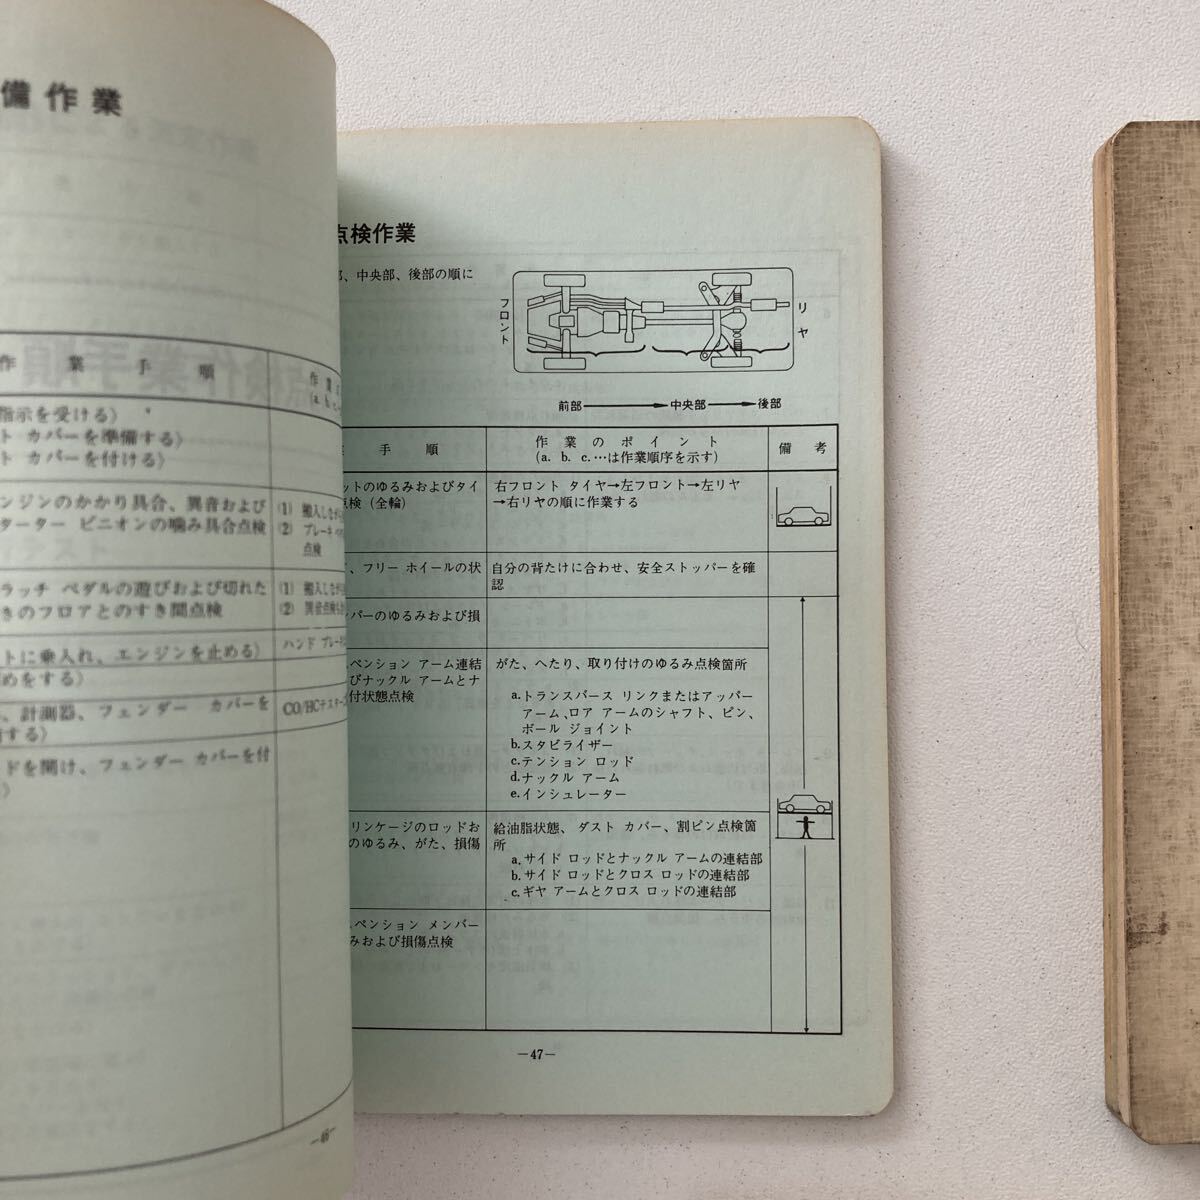 備作業
作業手順
指示を受ける）
ト カバーを準備する）
ト カバーを付ける）
ンジンのかかり具合、異音および
ターター ピニオンの噛み具合点検
(1) 搬入しながら
(2) ブレーキ
点検
ラッチ ペダルの遊びおよび切れた
きのフロアとのすき間点検
(1) 搬入しながら
(2) 異音点検
トに乗入れ、エンジンを止める）
めをする）
ハンド ブレーキ
、計測器、フェンダー カバーを
する）
CO/HCテスター
ドを開け、フェンダー カバーを付
）
—46—
点検作業
部、中央部、後部の順に
フロント
リヤ
前部 中央部 後部
手順
作業のポイント
(a. b. c.…は作業順序を示す)
備考
ットのゆるみおよびタイ
点検（全輪）
右フロント タイヤ→左フロント→左リヤ
→右リヤの順に作業する
、フリー ホイールの状
自分の背たけに合わせ、安全ストッパーを確
認
ンバーのゆるみおよび損
ペンション アーム連結
びナックル アームとナ
付状態点検
がた、へたり、取り付けのゆるみ点検箇所
a.トランスバース リンクまたはアッパー
アーム、ロア アームのシャフト、ピン、
ボール ジョイント
b.スタビライザー
c.テンション ロッド
d.ナックル アーム
e.インシュレーター
リンケージのロッドお
のゆるみ、がた、損傷
給油脂状態、ダスト カバー、割ピン点検箇
所
a.サイド ロッドとナックル アームの連結部
b.サイド ロッドとクロス ロッドの連結部
c.ギヤ アームとクロス ロッドの連結部
ペンション メンバー
みおよび損傷点検
—47—